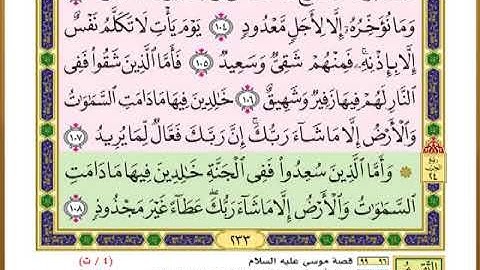 وَمَا نُؤَخِّرُهُۥٓ إِلَّا لِأَجَلٍ مَّعْدُودٍ ١٠٤ يَوْمَ يَأْتِ لَا تَكَلَّمُ نَفْسٌ
إِلَّا بِإِذْنِهِۦ ۚ فَمِنْهُمْ شَقِىٌّ وَسَعِيدٌ ١٠٥ فَأَمَّا ٱلَّذِينَ شَقُوا۟ فَفِى
ٱلنَّارِ لَهُمْ فِيهَا زَفِيرٌ وَشَهِيقٌ ١٠٦ خَـٰلِدِينَ فِيهَا مَا دَامَتِ ٱلسَّمَـٰوَٰتُ
وَٱلْأَرْضُ إِلَّا مَا شَآءَ رَبُّكَ ۚ إِنَّ رَبَّكَ فَعَّالٌ لِّمَا يُرِيدُ ١٠٧
۞ وَأَمَّا ٱلَّذِينَ سُعِدُوا۟ فَفِى ٱلْجَنَّةِ خَـٰلِدِينَ فِيهَا مَا دَامَتِ
ٱلسَّمَـٰوَٰتُ وَٱلْأَرْضُ إِلَّا مَا شَآءَ رَبُّكَ ۖ عَطَآءً غَيْرَ مَجْذُوذٍ ١٠٨
ربع
٢٤
٢٣٣
٩٦ - ٩٩ قصة موسى عليه السلام
(٤ / ت)